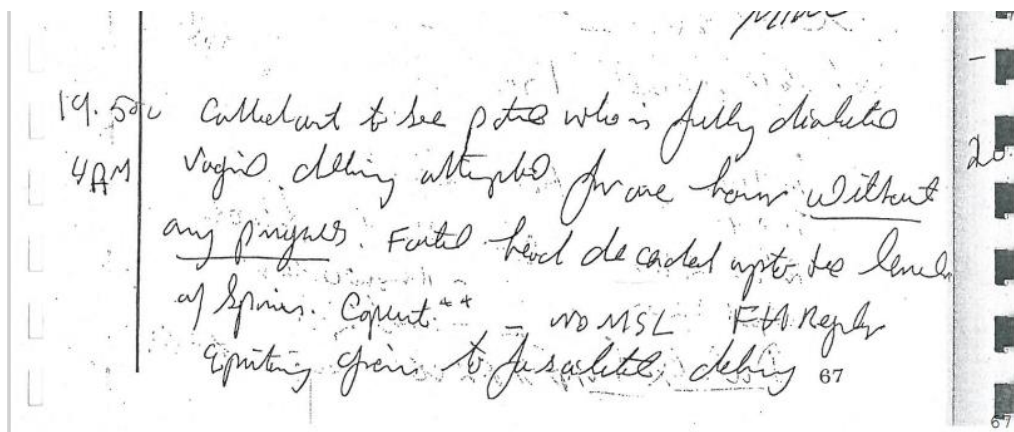 Called out to see patient who is fully dilated
4AM Vaginal delivery attempted for one hour without
any progress. Foetal head decended upto the level
of Spines. Caput ++ - NO MSL FH Regular
given to facilitate delivery 67
67